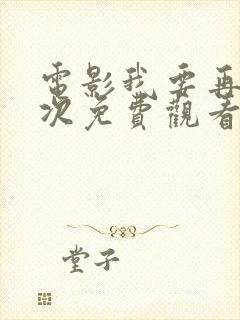 電影我要再
次免費觀看
堂子